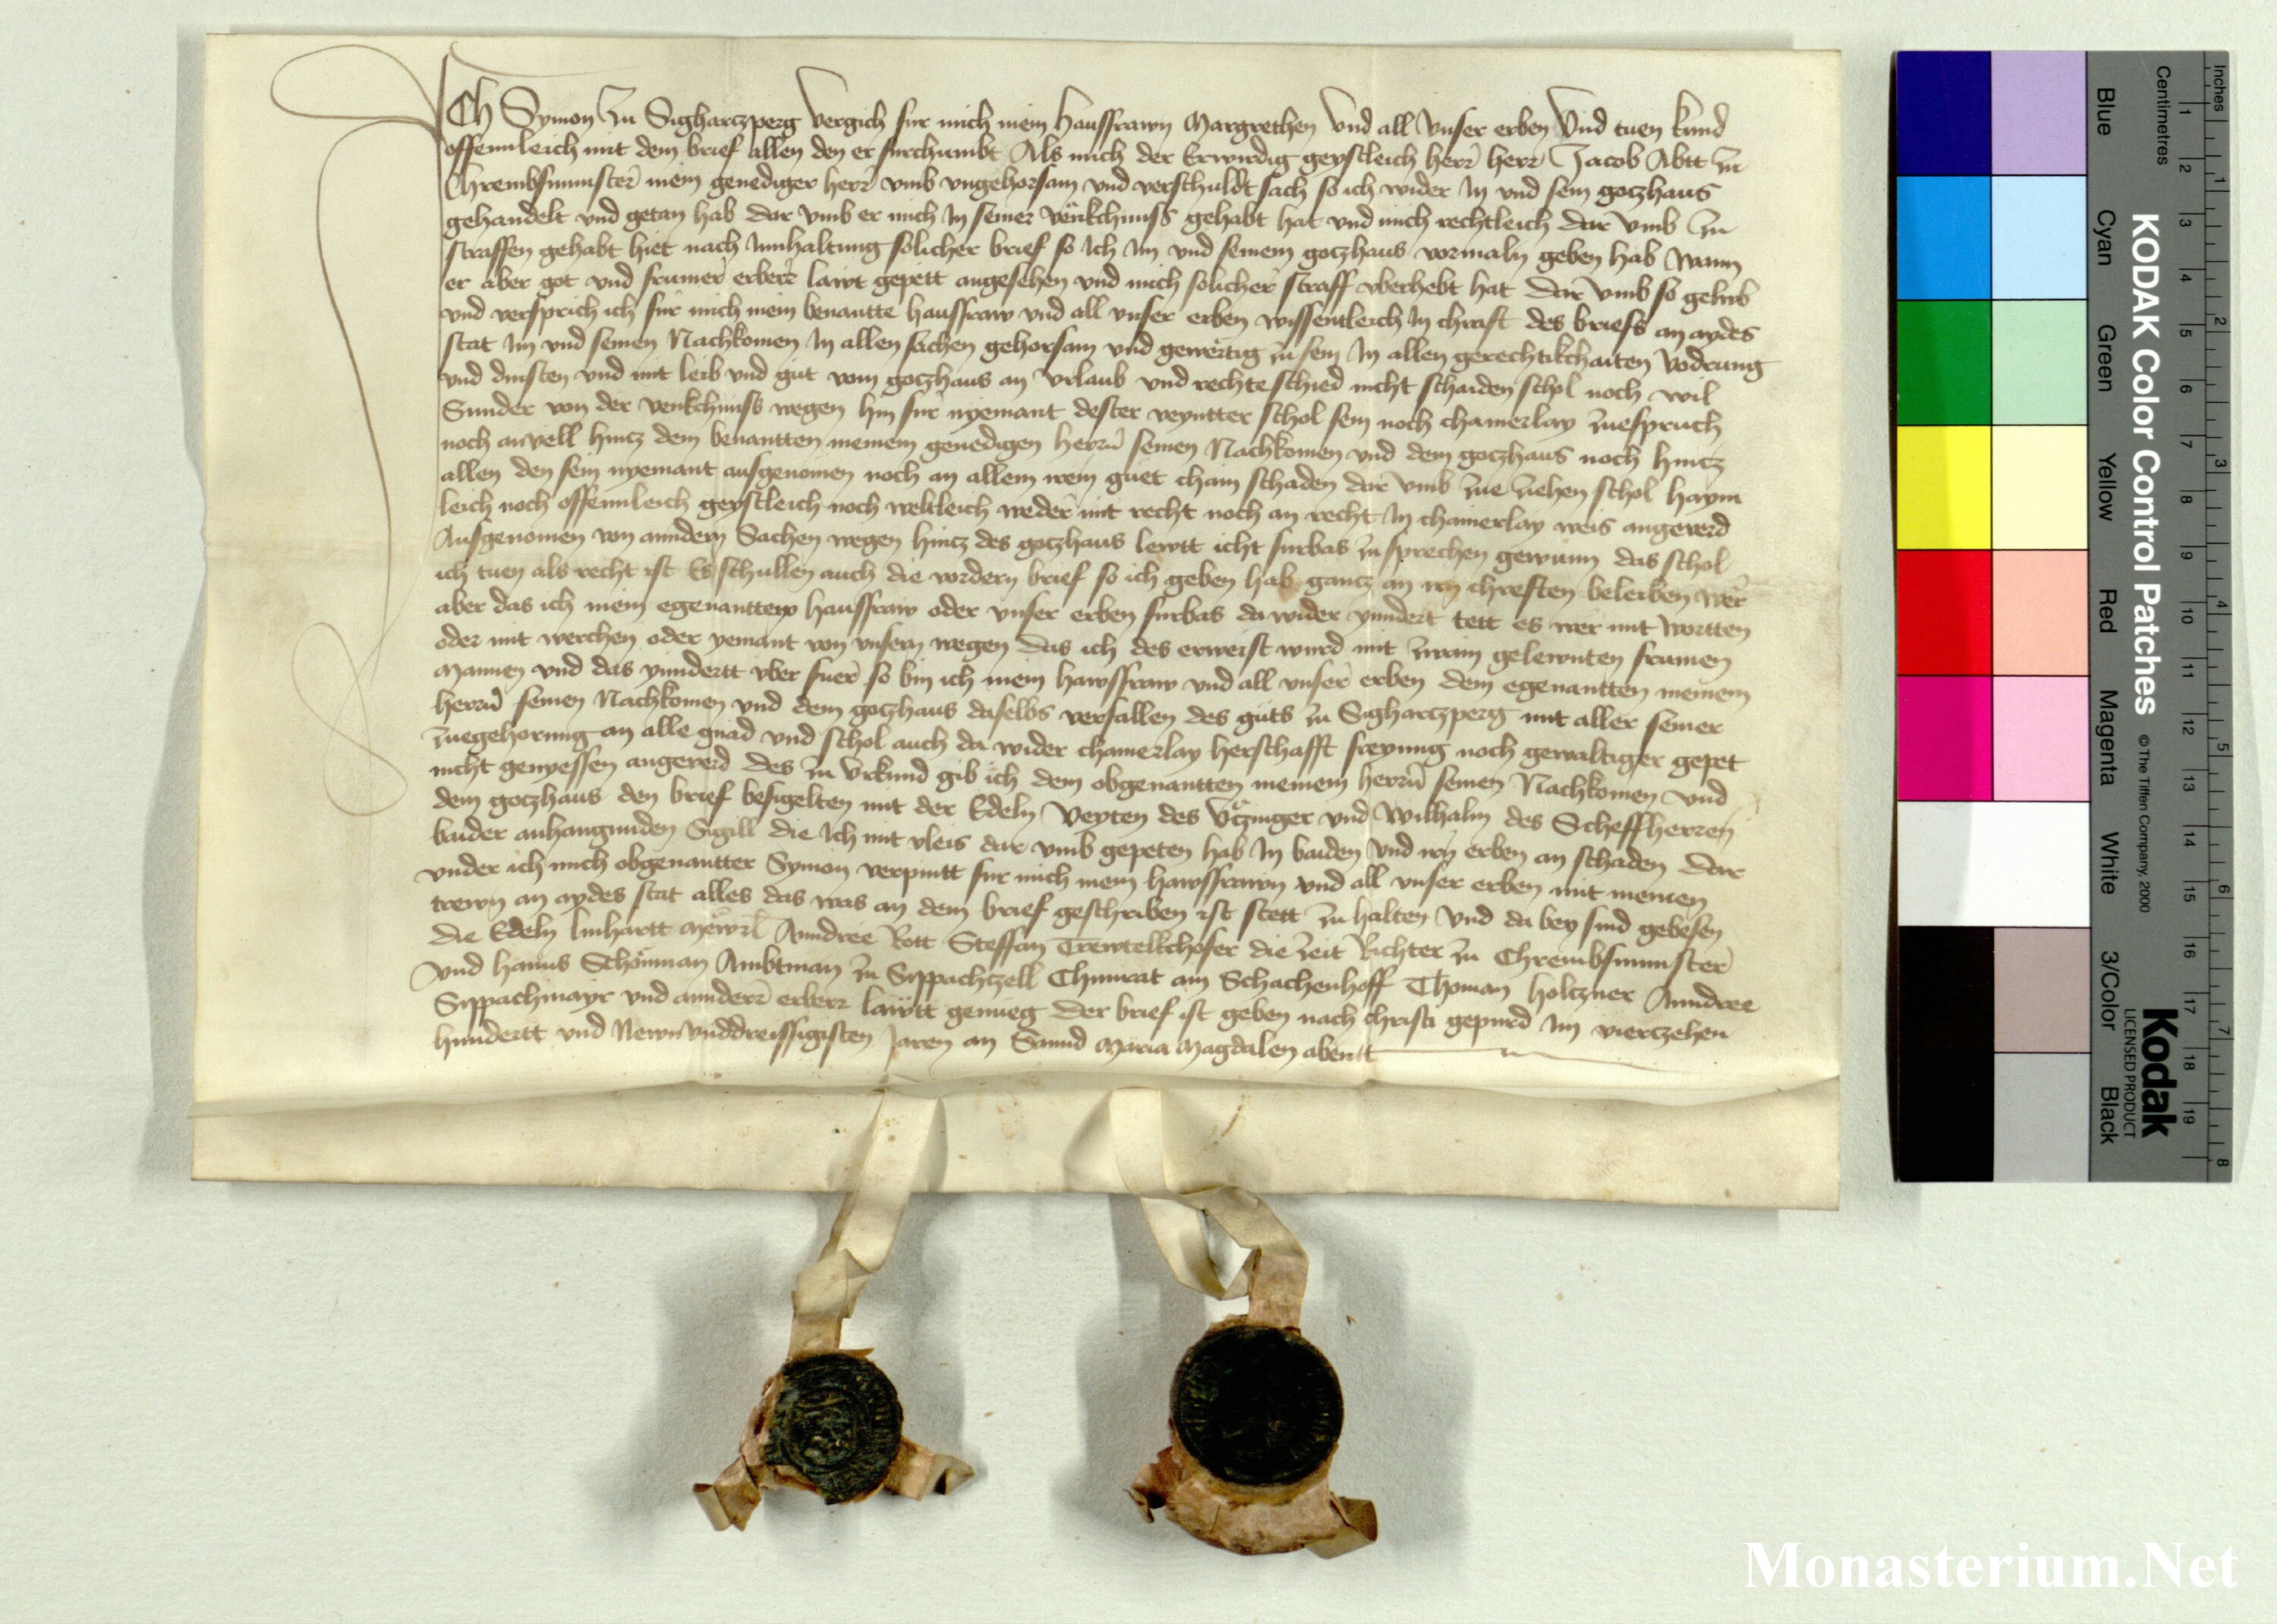 ICH Symon Zu Sighartzperg Vergich fur mich mein haussfrawn Margrethen Vnd all Vnser erben Vnd tuen kund
offennleich mit dem brief allen den er furchumbt Als mich der Erwirdig geystleich herr herr Jacob Abtt zu
Chrembsmunster mein genediger herr vmb vngehorsam vnd verschuldt sach so ich wider In vnd sein gotzhaus
gehandelt vnd getan hab dar vmb er mich In seiner venkchnuss gehabt hat vnd mich rechtleich dar vmb Zu
straffen gehabt hiet nach Innhaltung solicher brief so Ich Im vnd seinem gotzhaus vormaln geben hab Wann
er aber got vnd frumer erberr lawt gepett angesehen vnd mich solicher straff vberhebt hat Dar vmb so gelub
vnd versprich ich fur mich mein benantte haussfraw vnd all vnser erben wissentleich In chraft des briefs an aydes
stat Im vnd seinen Nachkomen In allen sachen gehorsam vnd gewertig zu sein In allen gerechtikchaiten Vodrung
vnd dinsten vnd mit leib vnd gut vom gotzhaus an Vrlaub vnd rechte schied nicht schaiden schol noch wil
Sunder von der venkchnuss wegen hin fur nyemant dester veyntter schol sein noch chainerlay zuespruch
noch anvell hintz dem benantten meinem genedigen herrn seinen Nachkomen vnd dem gotzhaus noch hintz
allen den sein nyemant ausgenomen noch an allem irem guet chain schaden dar vmb zue ziehen schol haym
leich noch offennleich geystleich noch weltleich weder mit recht noch an recht In chainerlay weis angeverd
Ausgenomen von anndern Sachen wegen hintz des gotzhaus lewtt icht furbas zu sprechen gewunn das schol
ich tuen als recht ist Es schullen auch die vordern brief so ich geben hab gantz an irn chreften beleiben wer
aber das ich mein egenanttew haussfraw oder vnser erben furbas da wider yndert tett es wer mit wortten
oder mit werchen oder yemant von vnsern wegen das ich des erweist wurd mit zwain gelewnten frumen
Mannen vnd das yndertt vber fuer so bin ich mein hawssfraw vnd all vnser erben dem egenantten meinem
herrn seinen Nachkomen vnd dem gotzhaus daselbs verfallen des guts zu Sighartzperg mit aller seiner
zuegehorung an alle gnad vnd schol auch da wider chainerlay herschafft freyung noch gewaltiger gepet
nicht genyessen angeverd Des zu Vrkund gib ich dem obgenantten meinem herrn seinen Nachkomen vnd
dem gotzhaus den brief besigelten mit der Edeln Veyten des Vtzinger vnd Wilhalm des Scheffherren
baider anhangunden Sigill die Ich mit vleis dar vmb gepeten hab In baiden Vnd irn erben an schaden Dar
vnder ich mich obgenantter Symon verpintt fur mich mein hawssfrawn vnd all vnser erben mit meinen
trewn an aydes stat alles das was an dem brief geschriben ist stett zu halten Vnd da bey sind gebesen
die Edeln linhartt Anndree Rott Steffan Trewtelkchofer die zeit Richter zu Chrembsmunster
Vnd hanns Schönman Ambtman zu Sippachtzell Chunrat am Schachenhoff Thoman holtzner Anndree
Sippachmayr vnd annderr erberr lawtt genueg Der brief ist geben nach christi gepurd Im viertzehen
hundertt vnd Newnvnddreissigisten Jaren an Sannd Maria Magdalen abentt
KODAK Color Control Patches
© The Tiffen Company, 2000
Kodak
LICENSED PRODUCT
Blue Cyan Green Yellow Red Magenta White 3/Color Black
Centimetres
1 2 3 4 5 6 7 8 9 10 11 12 13 14 15 16 17 18 19
Inches
1 2 3 4 5 6 7 8
Monasterium.Net